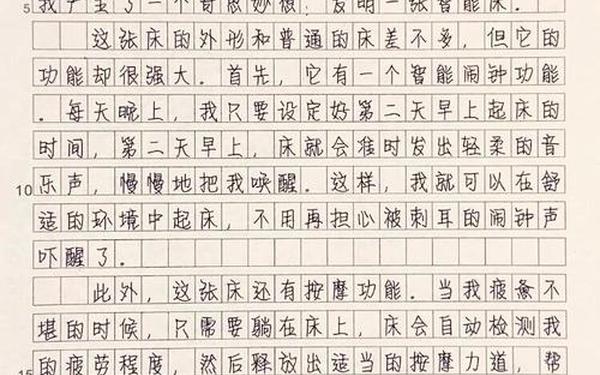 5 我产生了一个奇思妙想：发明一张智能床.
这张床的外形和普通的床差不多，但它的
功能却很强大. 首先，它有一个智能闹钟功能
. 每天晚上，我只要设定好第二天早上起床的
时间，第二天早上，床就会准时发出轻柔的音
10 乐声，慢慢地把我唤醒. 这样，我就可以在舒
适的环境中起床，不用再担心被刺耳的闹钟声
吓醒了.
此外，这张床还有按摩功能. 当我疲惫不
堪的时候，只需要躺在床上，床会自动检测我
15 的疲劳程度，然后释放出适当的按摩力道，帮